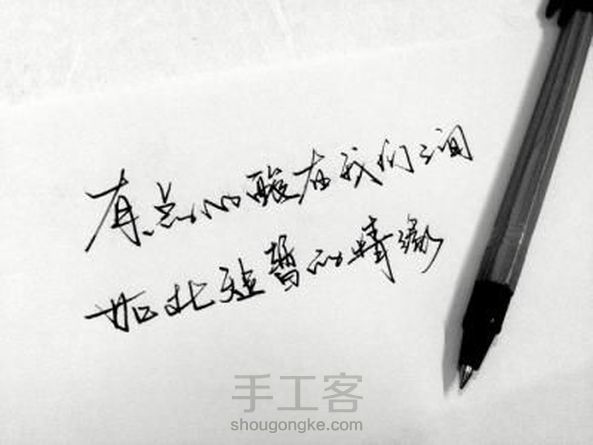 有点心酸在我们之间
如此短暂的情缘
手工客
shougongke.com